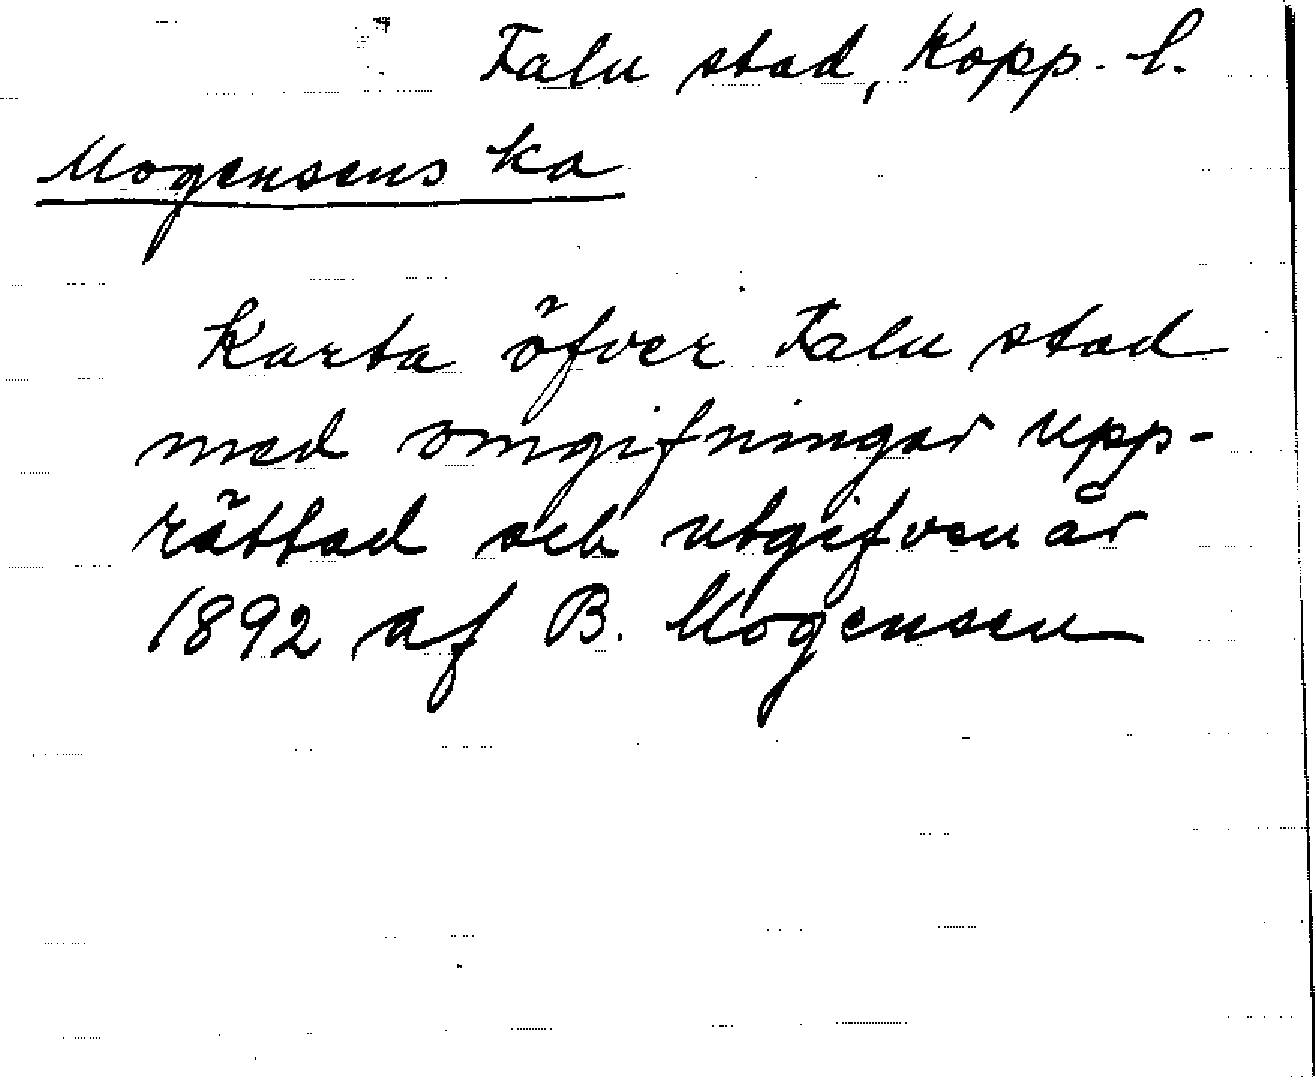 Falu stad, Kopp. l.
Mogensens ka
Karta öfver Falu stad
med omgifningar upp-
rättad och utgifven år
1892 af B. Mogensen